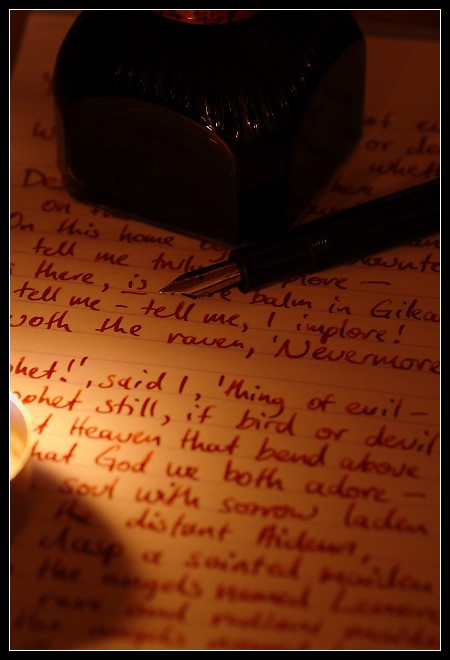 of ev
or de
whet
De here
on
On this home
tell me truly implore —
there, is balm in Gilea
tell me – tell me, I implore!
uoth the raven, 'Nevermore
phet!', said I, 'thing of evil –
ophet still, if bird or devil
t Heaven that bend above
hat God we both adore –
soul with sorrow laden
the distant Aidenn,
clasp a sainted maiden
the angels named Lenore
rare and radiant maiden
the angels named